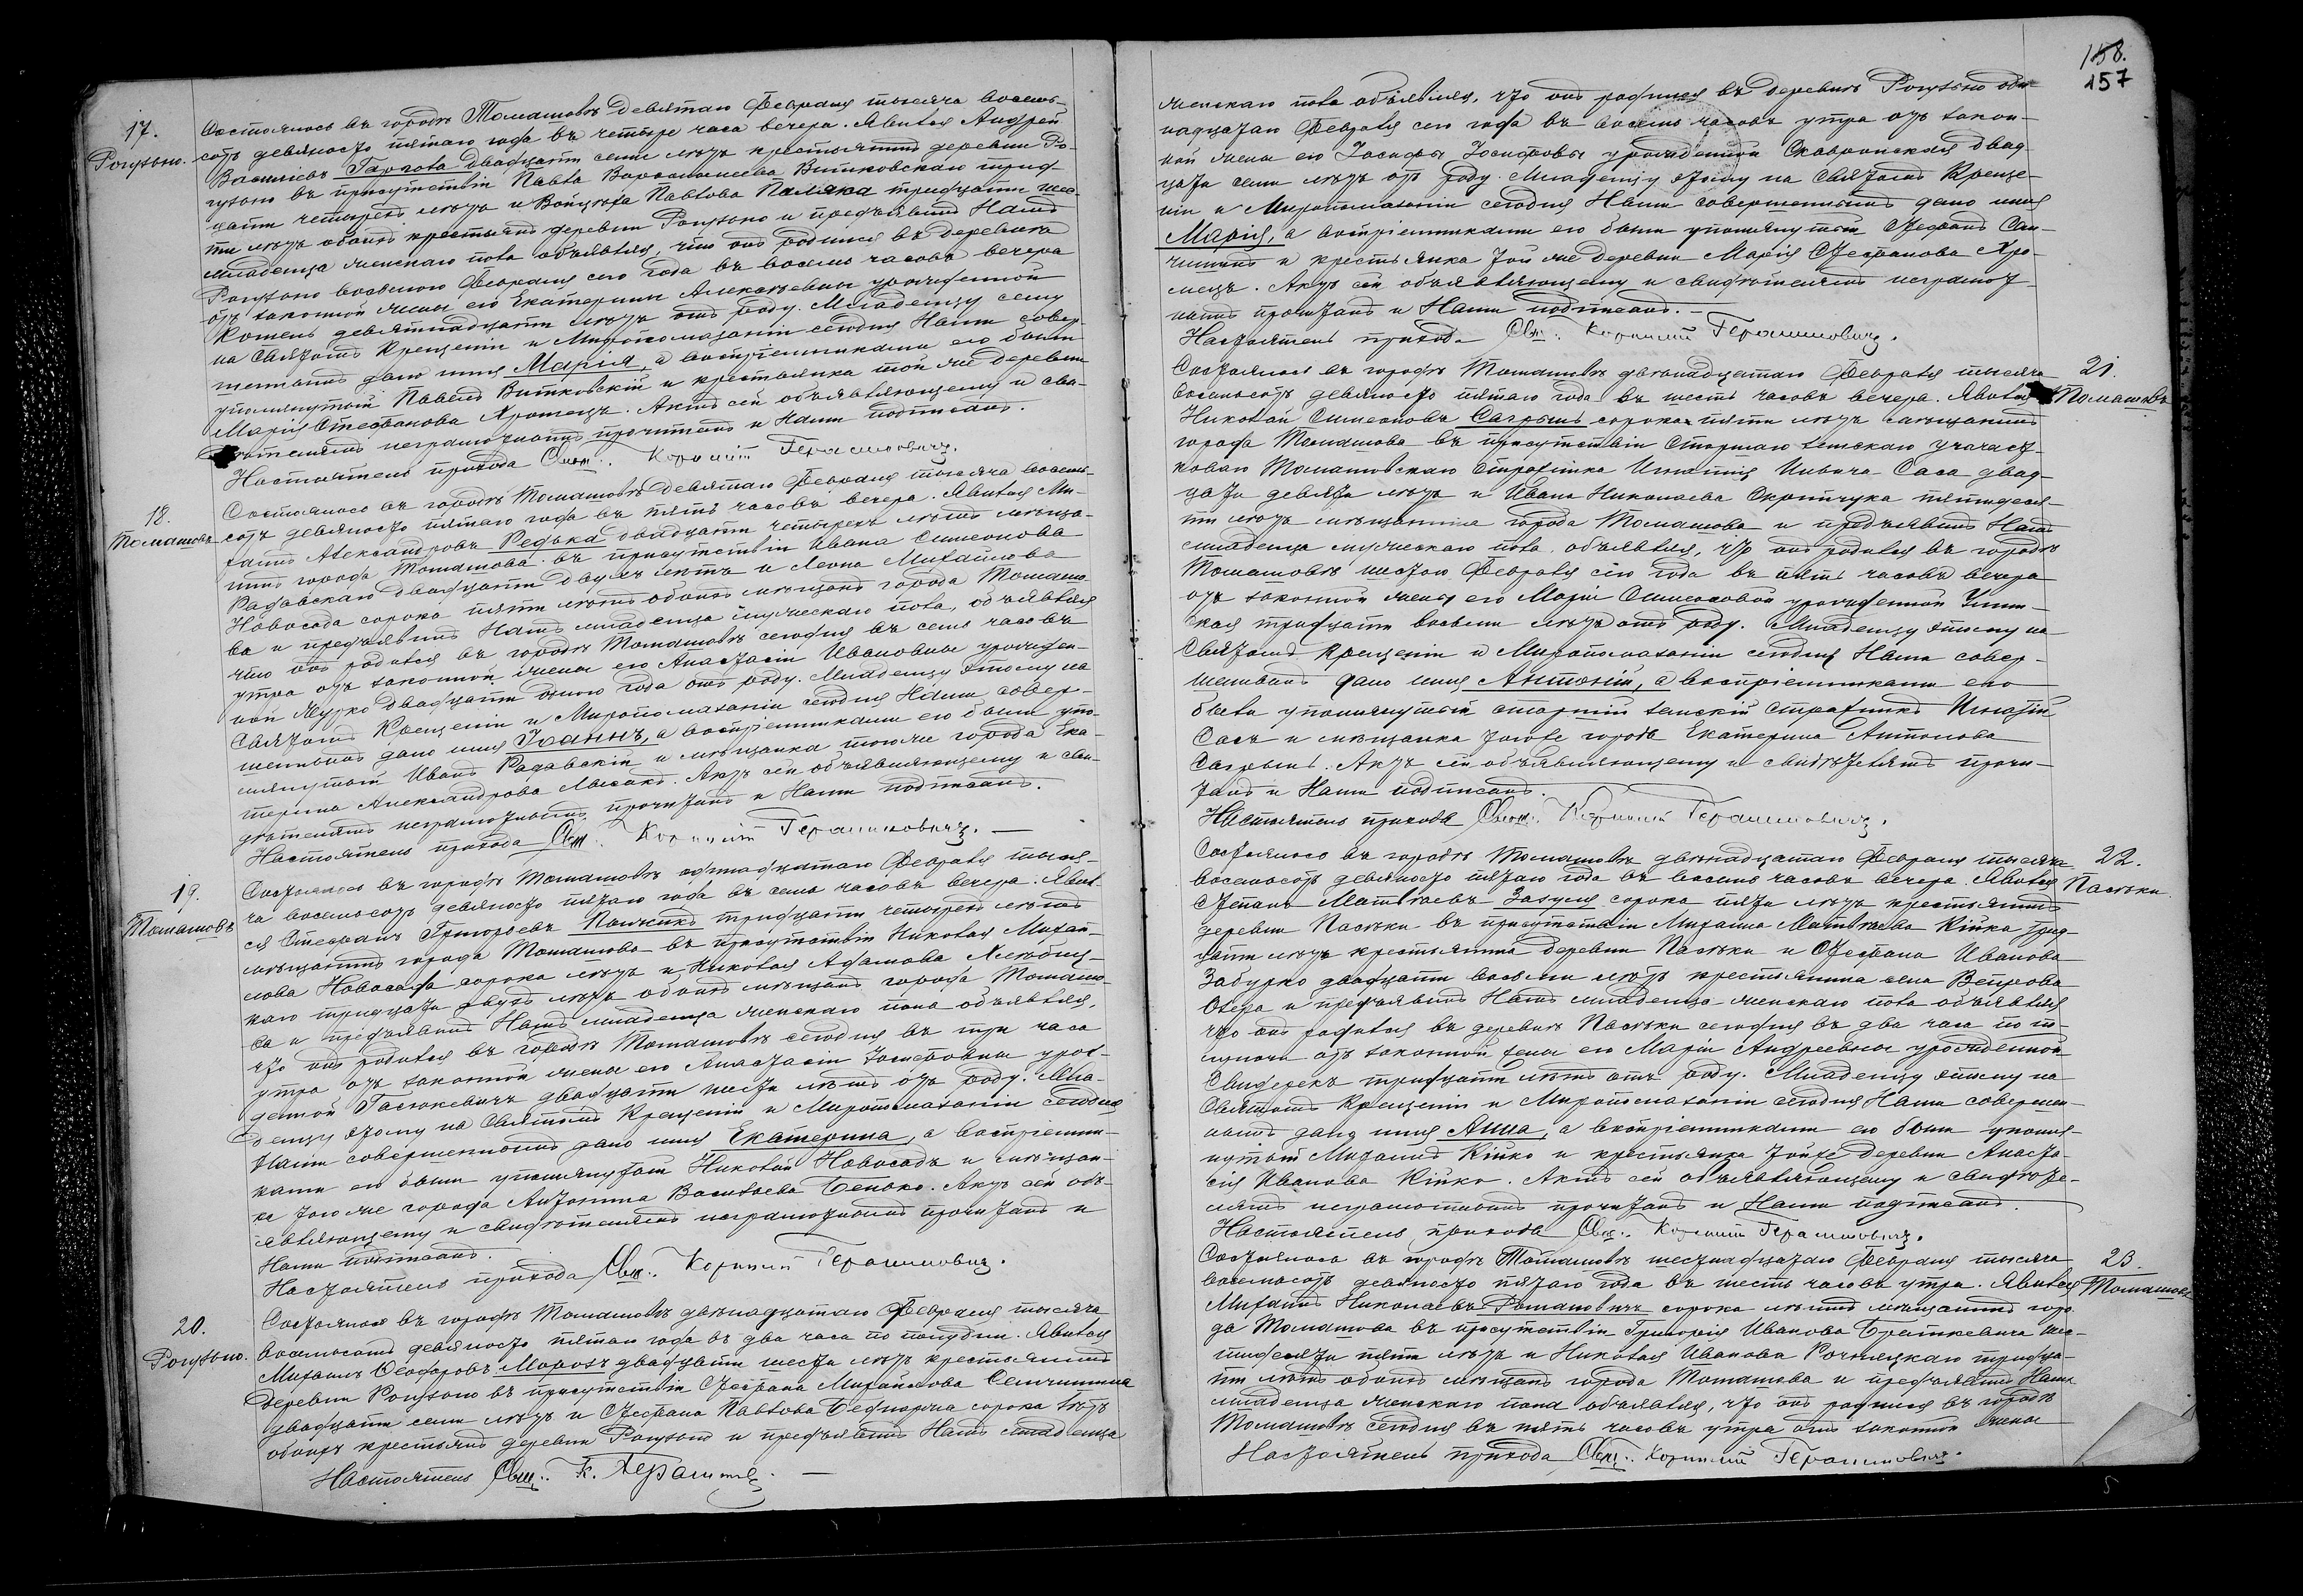 17.
Рогузьно.
Состоялось въ городѣ Томашовѣ девятаго Февраля тысяча восемь-
сотъ девяносто пятаго года въ четыре часа вечера. Явился Андрей
Васильевъ двадцати семи лѣтъ крестьянинъ деревни Ро-
гузьно въ присутствіи Павла Витковскаго трид-
цати четырехъ лѣтъ и Войцѣха Павлова тридцати шес-
ти лѣтъ обоихъ крестьянъ деревни Рогузьно и предъявилъ Намъ
младенца женскаго пола объявляя, что онъ родился въ деревнѣ
Рогузьно восьмого Февраля сего года въ восемь часовъ вечера
отъ законной жены его Екатерины Алексѣевны урожденной
Котень девятнадцати лѣтъ отъ роду. Младенцу сему
на Святомъ Крещеніи и Миропомазаніи сегодня Нами совер-
шенномъ дано имя Марія, а воспріемниками его были
упомянутый Павелъ Витковскій и крестьянка той же деревни
Марія Стефанова Хромецъ. Актъ сей объявляющему и сви-
дѣтелямъ неграмотнымъ прочитанъ и Нами подписанъ.
Настоятель прихода Свящ. Корнилій Герасимовичъ.
18.
Томашовъ
Состоялось въ городѣ Томашовѣ девятаго Февраля тысяча восемь-
сотъ девяносто пятаго года въ пять часовъ вечера. Явился Ми-
хаилъ Александровъ Редька двадцати четырехъ лѣтъ мѣща-
нинъ города Томашова въ присутствіи Ивана Симеонова
Радавскаго двадцати двухъ лѣтъ и Леона Михайлова
Новосада сорока пяти лѣтъ обоихъ мѣщанъ города Томашо-
ва и предъявилъ Намъ младенца мужескаго пола, объявляя
что онъ родился въ городѣ Томашовѣ сегодня въ семь часовъ
утра отъ законной жены его Анастасіи Ивановны урожден-
ной двадцати одного года отъ роду. Младенцу этому на
Святомъ Крещеніи и Миропомазаніи сегодня Нами совер-
шенномъ дано имя Іоаннъ, а воспріемниками его были упо-
мянутый Иванъ Радавскій и мѣщанка того же города Ека-
терина Александрова. Актъ сей объявляющему и сви-
дѣтелямъ неграмотнымъ прочитанъ и Нами подписанъ.
Настоятель прихода Свящ. Корнилій Герасимовичъ.
19.
Томашовъ
Состоялось въ городѣ Томашовѣ одинадцатаго Февраля тыся-
ча восемьсотъ девяносто пятаго года въ семь часовъ вечера. Явил-
ся Стефанъ Григорьевъ тридцати четырехъ лѣтъ
мѣщанинъ города Томашова въ присутствіи Николая Михай-
лова Новосада сорока лѣтъ и Николая Адамова
каго тридцати двухъ лѣтъ обоихъ мѣщанъ города Томашо-
ва и предъявилъ Намъ младенца женскаго пола объявляя,
что онъ родился въ городѣ Томашовѣ сегодня въ три часа
утра отъ законной жены его Анастасіи Іосифовны урож-
денной Гасюкевичъ двадцати шести лѣтъ отъ роду. Мла-
денцу этому на Святомъ Крещеніи и Миропомазаніи сегодня
Нами совершенномъ дано имя Екатерина, а воспріемни-
ками его были упомянутый Николай Новосадъ и мѣщан-
ка того же города Антонина Васильева. Актъ сей объ-
являющему и свидѣтелямъ неграмотнымъ прочитанъ и
Нами подписанъ.
Настоятель прихода Свящ. Корнилій Герасимовичъ.
20.
Рогузьно.
Состоялось въ городѣ Томашовѣ двѣнадцатаго Февраля тысяча
восемьсотъ девяносто пятаго года въ два часа по полудни. Явился
Михаилъ Ѳеодоровъ Морозъ двадцати шести лѣтъ крестьянинъ
деревни Рогузьно въ присутствіи Стефана Михайлова
двадцати семи лѣтъ и Стефана Павлова Беднарча сорока лѣтъ
обоихъ крестьянъ деревни Рогузьно и предъявилъ Намъ младенца
Настоятель Свящ. К. Герасимов.
158.
157
женскаго пола объявляя, что онъ родился въ деревнѣ Рогузьно оди-
надцатаго Февраля сего года въ восемь часовъ утра отъ закон-
ной жены его Іосифы Іосифовы урожденной Скавронской двад-
цати семи лѣтъ отъ роду. Младенцу этому на Святомъ Креще-
ніи и Миропомазаніи сегодня Нами совершенномъ дано имя
Марія, а воспріемниками его были упомянутый Стефанъ
и крестьянка той же деревни Марія Стефанова Хро-
мецъ. Актъ сей объявляющему и свидѣтелямъ неграмот-
нымъ прочитанъ и Нами подписанъ.
Настоятель прихода Свящ. Корнилій Герасимовичъ.
21.
Томашовъ
Состоялось въ городѣ Томашовѣ двѣнадцатаго Февраля тысяча
восемьсотъ девяносто пятаго года въ шесть часовъ вечера. Явился
Николай Симеоновъ Сагрынь сорока пяти лѣтъ мѣщанинъ
города Томашова въ присутствіи Старшаго земскаго участ-
коваго Томашовскаго стражника Игнатія Саса двад-
цати девяти лѣтъ и Ивана Николаева пятидеся-
ти лѣтъ мѣщанина города Томашова и предъявилъ Намъ
младенца мужескаго пола объявляя, что онъ родился въ городѣ
Томашовѣ шестого Февраля сего года въ пять часовъ вечера
отъ законной жены его Маріи Симеоновой урожденной
тридцати восьми лѣтъ отъ роду. Младенцу этому на
Святомъ Крещеніи и Миропомазаніи сегодня Нами совер-
шенномъ дано имя Антоній, а воспріемниками его
были упомянутый старшій земскій стражникъ Игнатій
Сасъ и мѣщанка того же города Екатерина Антонова
Сагрынь. Актъ сей объявляющему и свидѣтелямъ прочи-
танъ и Нами подписанъ.
Настоятель прихода Свящ. Корнилій Герасимовичъ.
22.
Пасѣки
Состоялось въ городѣ Томашовѣ двѣнадцатаго Февраля тысяча
восемьсотъ девяносто пятаго года въ восемь часовъ вечера. Явился
Степанъ Матвѣевъ сорока пяти лѣтъ крестьянинъ
деревни Пасѣки въ присутствіи Михаила Матвѣева Кійка трид-
цати лѣтъ крестьянина деревни Пасѣки и Стефана Иванова
двадцати восьми лѣтъ крестьянина села Вепрова
Озера и предъявилъ Намъ младенца женскаго пола объявляя
что онъ родился въ деревнѣ Пасѣки сегодня въ два часа по по-
луночи отъ законной жены его Маріи Андреевны урожденной
Свидерекъ тридцати лѣтъ отъ роду. Младенцу этому на
Святомъ Крещеніи и Миропомазаніи сегодня Нами совершен-
номъ дано имя Анна, а воспріемниками его были упомя-
нутый Михаилъ Кійко и крестьянка той же деревни Анаста-
сія Иванова Кійко. Актъ сей объявляющему и свидѣте-
лямъ неграмотнымъ прочитанъ и Нами подписанъ.
Настоятель прихода Свящ. Корнилій Герасимовичъ.
23.
Томашовъ
Состоялось въ городѣ Томашовѣ шестнадцатаго Февраля тысяча
восемьсотъ девяносто пятаго года въ шесть часовъ утра. Явился
Михаилъ Николаевъ Романовичъ сорока лѣтъ мѣщанинъ горо-
да Томашова въ присутствіи Григорія Иванова Браткевича шес-
тидесяти пяти лѣтъ и Николая Иванова тридца-
ти лѣтъ обоихъ мѣщанъ города Томашова и предъявилъ Намъ
младенца женскаго пола объявляя, что онъ родился въ городѣ
Томашовѣ сегодня въ пять часовъ утра отъ законной жены
Настоятель прихода Свящ. Корнилій Герасимовичъ.